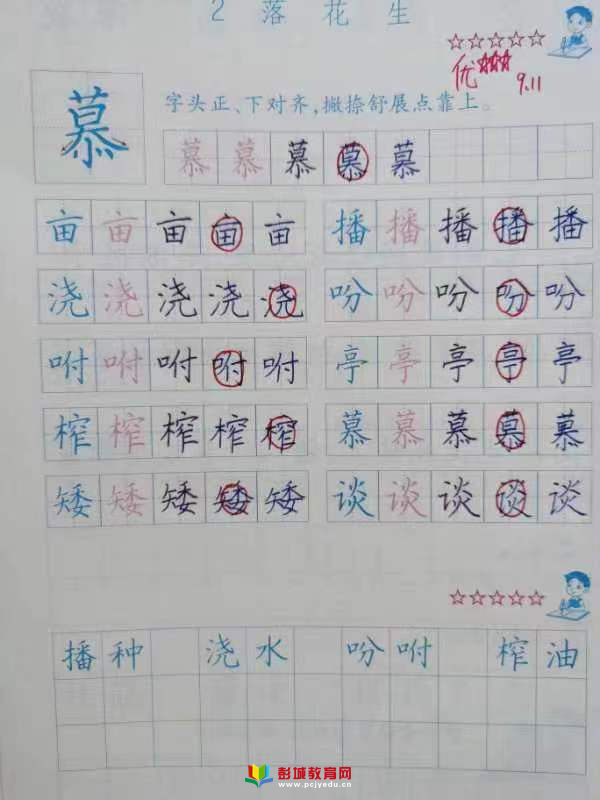 2 落花生
☆☆☆☆☆
优
9.11
慕
字头正、下对齐，撇捺舒展点靠上。
慕 慕 慕 慕 慕
亩 亩 亩 亩 亩 播 播 播 播 播
浇 浇 浇 浇 浇 吩 吩 吩 吩 吩
咐 咐 咐 咐 咐 亭 亭 亭 亭 亭
榨 榨 榨 榨 榨 慕 慕 慕 慕 慕
矮 矮 矮 矮 矮 谈 谈 谈 谈 谈
☆☆☆☆☆
播种 浇水 吩咐 榨油
彭城教育网
www.pcjyedu.cn